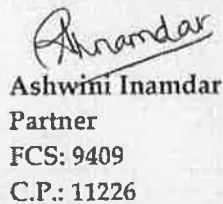 Ahnamdar
Ashwini Inamdar
Partner
FCS: 9409
C.P.: 11226